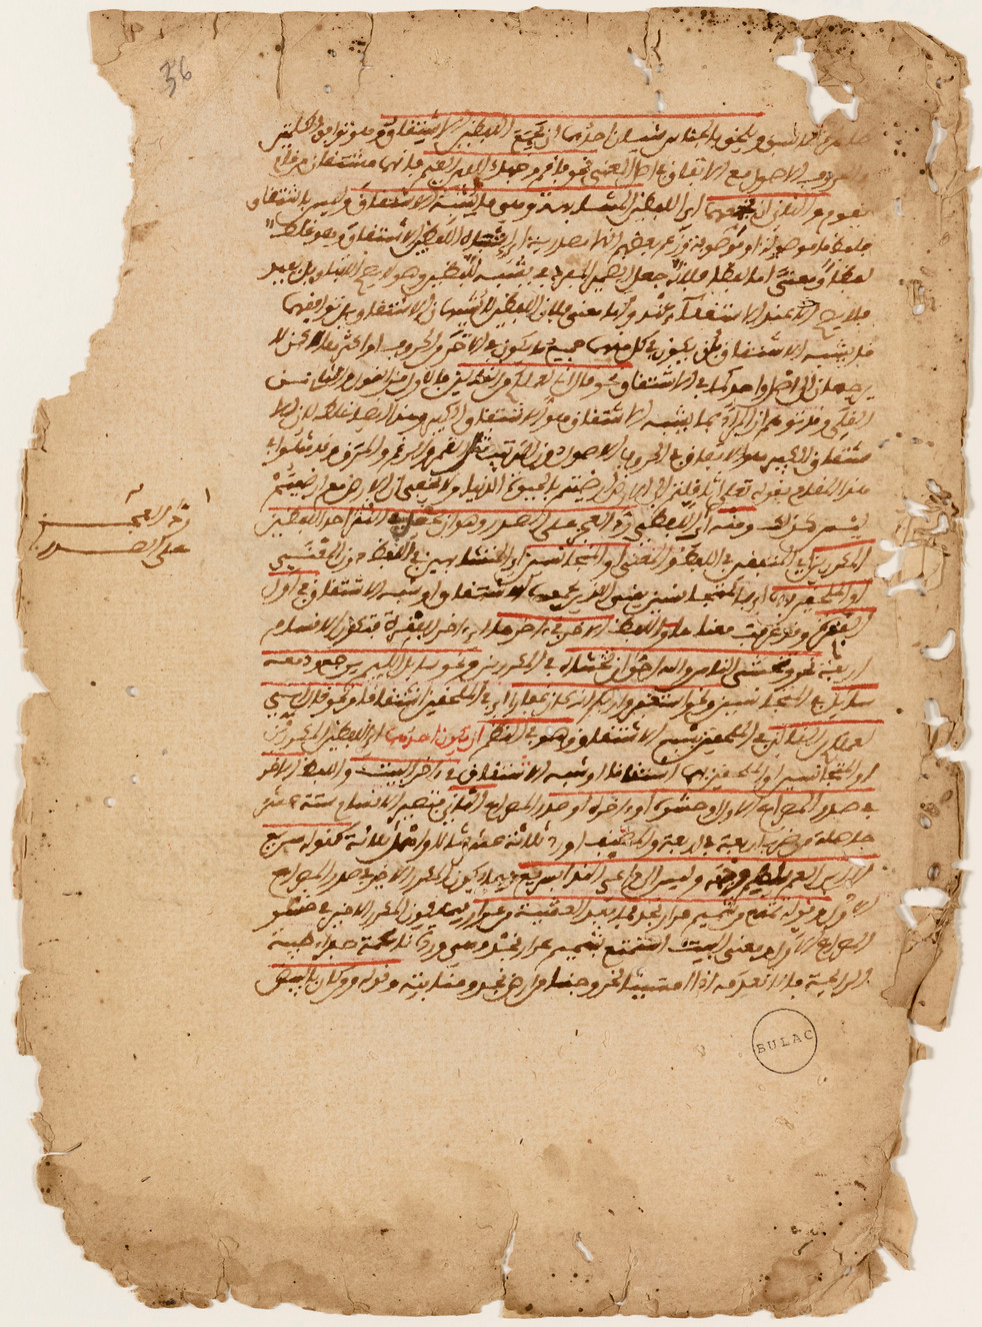 ويلحق بالجناس شيئان احدهما ان يجمع اللفظين الاشتقاق وهو توافق الكلمتين
في الحروف الاصول مع الاتفاق في اصل المعنى نحو فاقم وجهك للدين القيم فانهما مشتقان من قام
يقوم والثاني ان يجمعهما اي اللفظين المشابهة وهي ما يشبه الاشتقاق وليس باشتقاق
فلفظة ما موصولة او موصوفة وزعم بعضهم انها مصدرية اي اشباه اللفظين الاشتقاق وهو غلط
لفظا ومعنى اما لفظا فلانه جعل الضمير المفرد في يشبه للفظين وهو لا يصح الا بتاويل بعيد
فلا يصح عند الاستغناء عنه واما معنى فلان اللفظين لا يشبهان الاشتقاق بل توافقهما
قد يشبه الاشتقاق بان يكون في كل منهما جميع ما يكون في الآخر من الحروف او اكثر لكن لا
يرجعان الى اصل واحد كما في الاشتقاق نحو قال اني لعملكم من القالين فالاول من القول والثاني من
القلى وقد يتوهم ان المراد بما يشبه الاشتقاق هو الاشتقاق الكبير وهذا ايضا غلط لان الا
شتقاق الكبير هو الاتفاق في الحروف الاصول دون الترتيب مثل القمر والرقم والمرق وقد مثلوا في
هذا المقام بقوله تعلى اثاقلتم الى الارض ارضيتم بالحيوة الدنيا ولا يخفى ان الارض مع ارضيتم
ليس كذلك ومنه اي اللفظي رد العجز على الصدر وهو ان يجعل في النثر احد اللفظين
المكررين اي المتفقين في اللفظ والمعنى او المتجانسين اي المتشابهين في اللفظ دون المعنى
او الملحقين بهما اي بالمتجانسين يعنى اللذين يجمعهما الاشتقاق او شبه الاشتقاق في اول
الفقرة وقد عرفت معناها واللفظ الآخر في آخرها اي آخر الفقرة فتكون الاقسام
اربعة نحو وتخشى الناس والله احق ان تخشاه في المكررين ونحو سايل اللئيم يرجع ودمعه
سايل في المتجانسين ونحو استغفروا ربكم انه كان غفارا في الملحقين اشتقاقا ونحو قال اني
لعملكم من القالين في الملحقين بشبه الاشتقاق وهو في النظم ان يكون احدهما اي اللفظين المكررين
او المتجانسين او الملحقين بهما اشتقاقا او شبه الاشتقاق في آخر البيت واللفظ الآخر
في صدر المصراع الاول او حشوه او آخره او صدر المصراع الثاني فتصير الاقسام ستة عشر
حاصلة من ضرب اربعة في اربعة والمصنف اورد ثلاثة عشر مثالا واهمل ثلاثة كقوله سريع
الى ابن العم يلطم وجهه وليس الى داعي الندا بسريع فيما يكون المكرر الآخر في صدر المصراع
الاول وقوله تمتع من شميم عرار نجد فما بعد العشية من عرار فيما يكون المكرر الآخر في حشو
المصراع الاول ومعنى البيت استمتع بشميم عرار نجد وهي وردة ناعمة صفراء طيبة
الرائحة فانا نعدمه اذا امسينا لخروجنا من ارض نجد ومنابته وقوله ومن كان بالبيض
رد العجز
على الصدر
36
BULAC